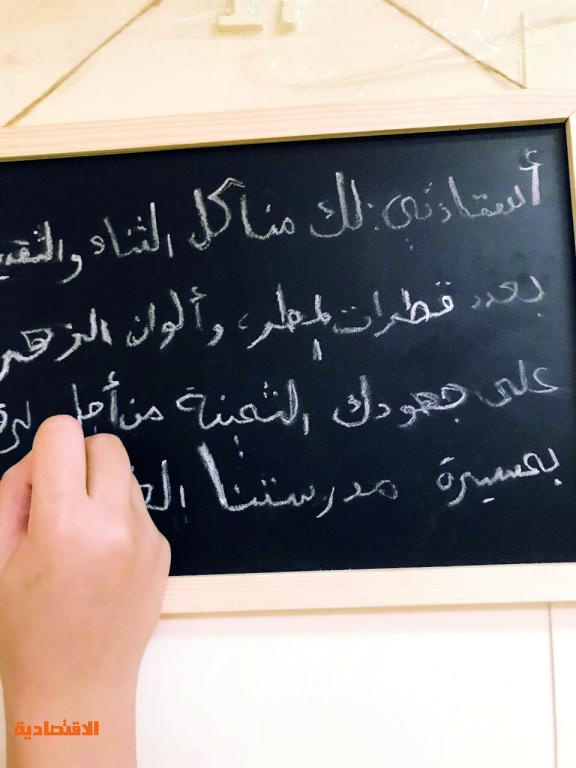 أستاذتي: لك منا كل الثناء والتقدير
بعدد قطرات المطر، وألوان الزهر
على جهودك الثمينة من أجل
بمسيرة مدرستنا
الاقتصادية